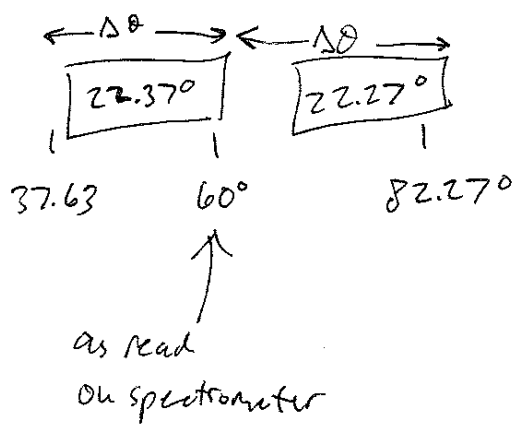 Δθ Δθ
22.37° 22.27°
37.63 60° 82.27°
as read
on spectrometer